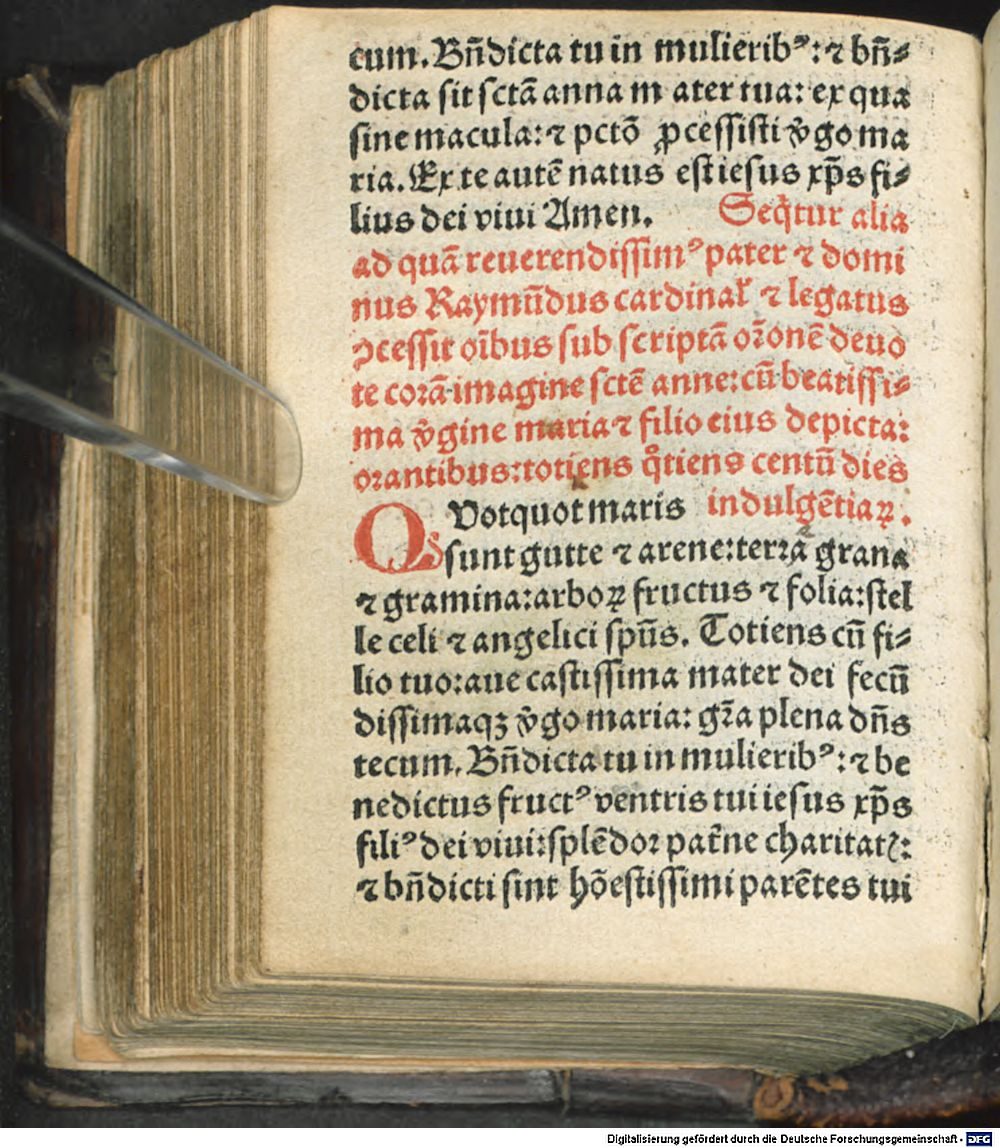 cum. Bn̄dicta tu in mulierib⁹: ⁊ bn̄⸗
dicta sit sctā anna m ater tua: ex qua
sine macula: ⁊ pctō ꝓcessisti v̄go ma
ria. Ex te autē natus est iesus xp̄s fi⸗
lius dei viui Amen. Seq̄tur alia
ad quā reuerendissim⁹ pater ⁊ domi
nus Raymūdus cardinal̄ ⁊ legatus
ꝯcessit oībus sub scriptā or̄onē deuo
te corā imagine sctē anne: cū beatissi⸗
ma v̄gine maria ⁊ filio eius depicta:
orantibus: totiens q̄tiens centū dies
indulgētiaꝝ.
Qs Votquot maris
sunt gutte ⁊ arene: terra grana
⁊ gramina: arboꝝ fructus ⁊ folia: stel
le celi ⁊ angelici spūs. Totiens cū fi⸗
lio tuo: aue castissima mater dei fecū
dissimaqꝫ v̄go maria: gr̄a plena dn̄s
tecum. Bn̄dicta tu in mulierib⁹: ⁊ be
nedictus fruct⁹ ventris tui iesus xp̄s
fili⁹ dei viui: splēdor pat̄ne charitatꝭ:
⁊ bn̄dicti sint hōestissimi parētes tui
Digitalisierung gefördert durch die Deutsche Forschungsgemeinschaft - DFG